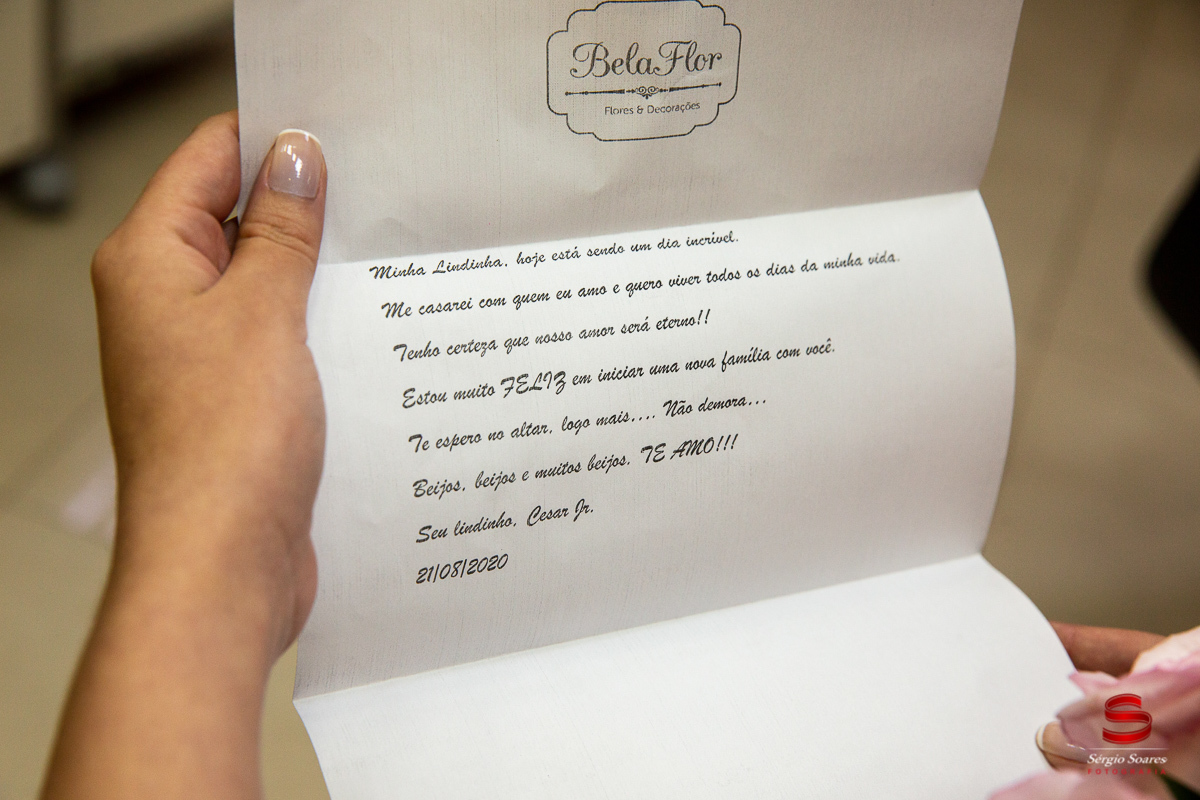 BelaFlor
Flores & Decorações
Minha Lindinha, hoje está sendo um dia incrível.
Me casarei com quem eu amo e quero viver todos os dias da minha vida.
Tenho certeza que nosso amor será eterno!!
Estou muito FELIZ em iniciar uma nova família com você.
Te espero no altar, logo mais.... Não demora...
Beijos, beijos e muitos beijos. TE AMO!!!
Seu lindinho, Cesar Jr.
21/08/2020
S
Sérgio Soares
FOTOGRAFIA